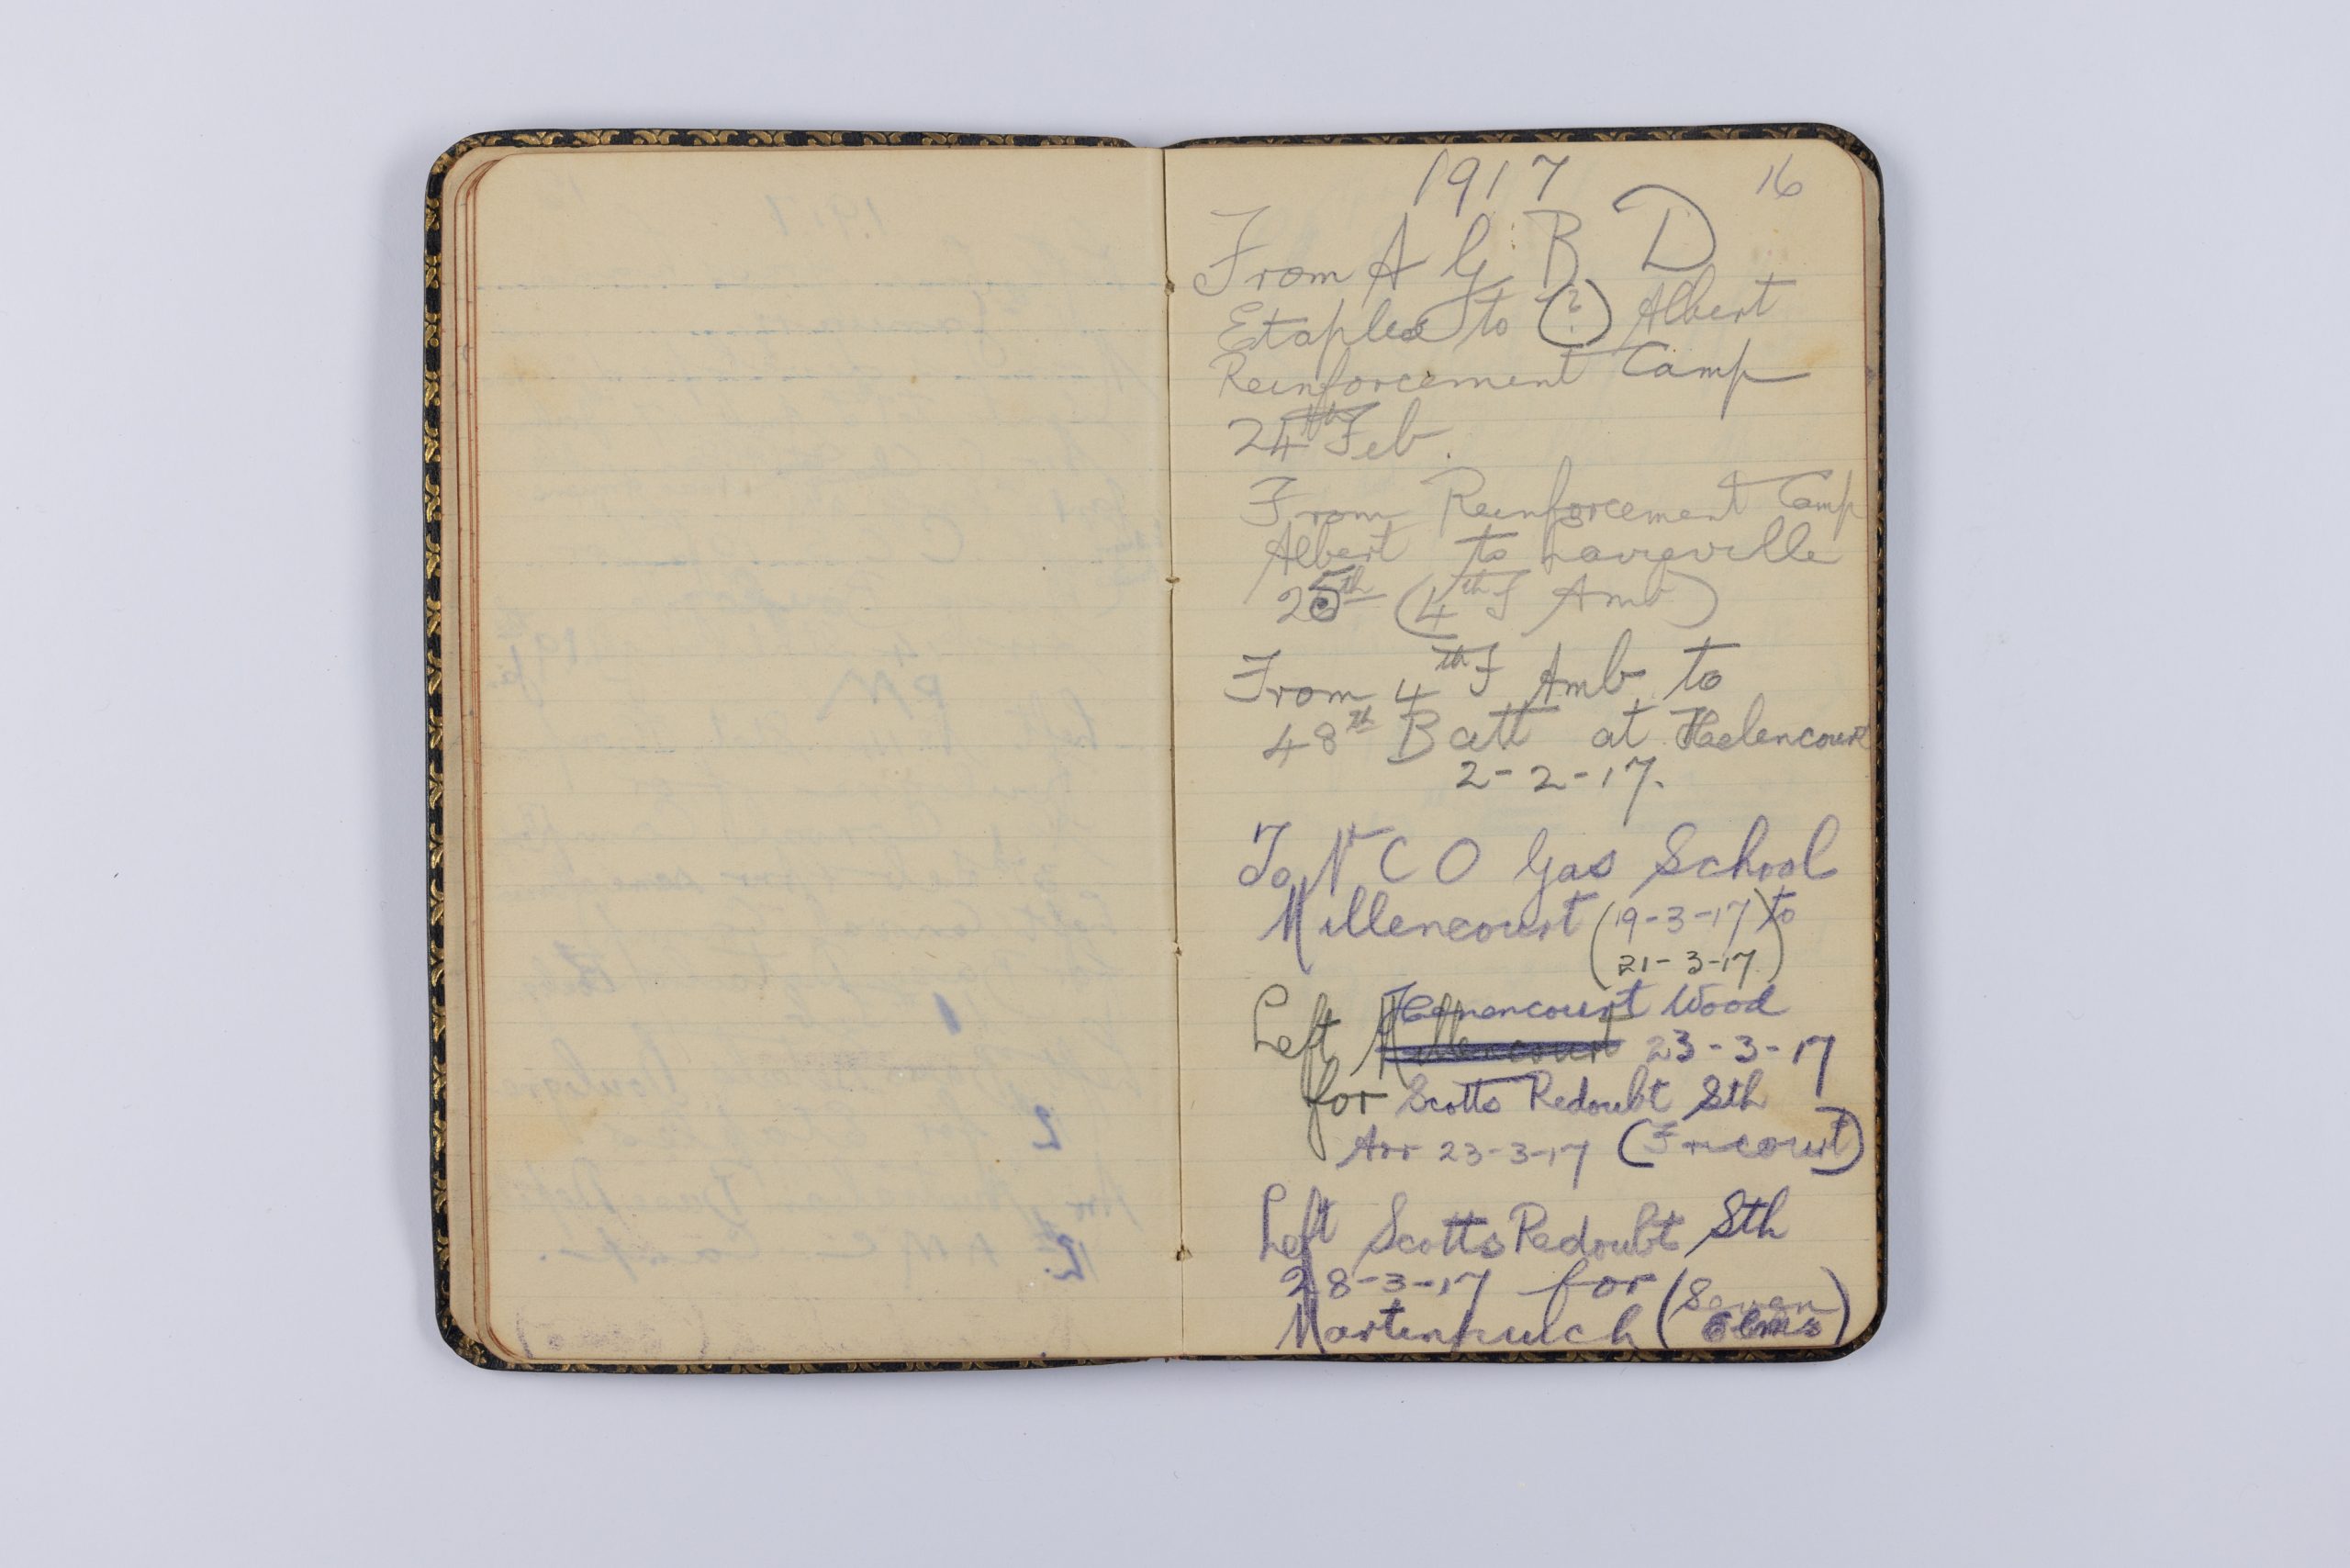 1917 16
From A G B D
Etaples to (?) Albert
Reinforcement Camp
24th Feb.
From Reinforcement Camp
Albert to Lavieville
25th (4th F Amb)
From 4th F Amb to
48th Batt at
2-2-17.
To N C O Gas School
Millencourt (19-3-17) to
21-3-17)
Henencourt Wood
Left Millencourt 23-3-17
for Scotts Redoubt Sth
Arr 23-3-17 (Fricourt)
Left Scotts Redoubt Sth
28-3-17 for (Seven
Martinpuich Elms)